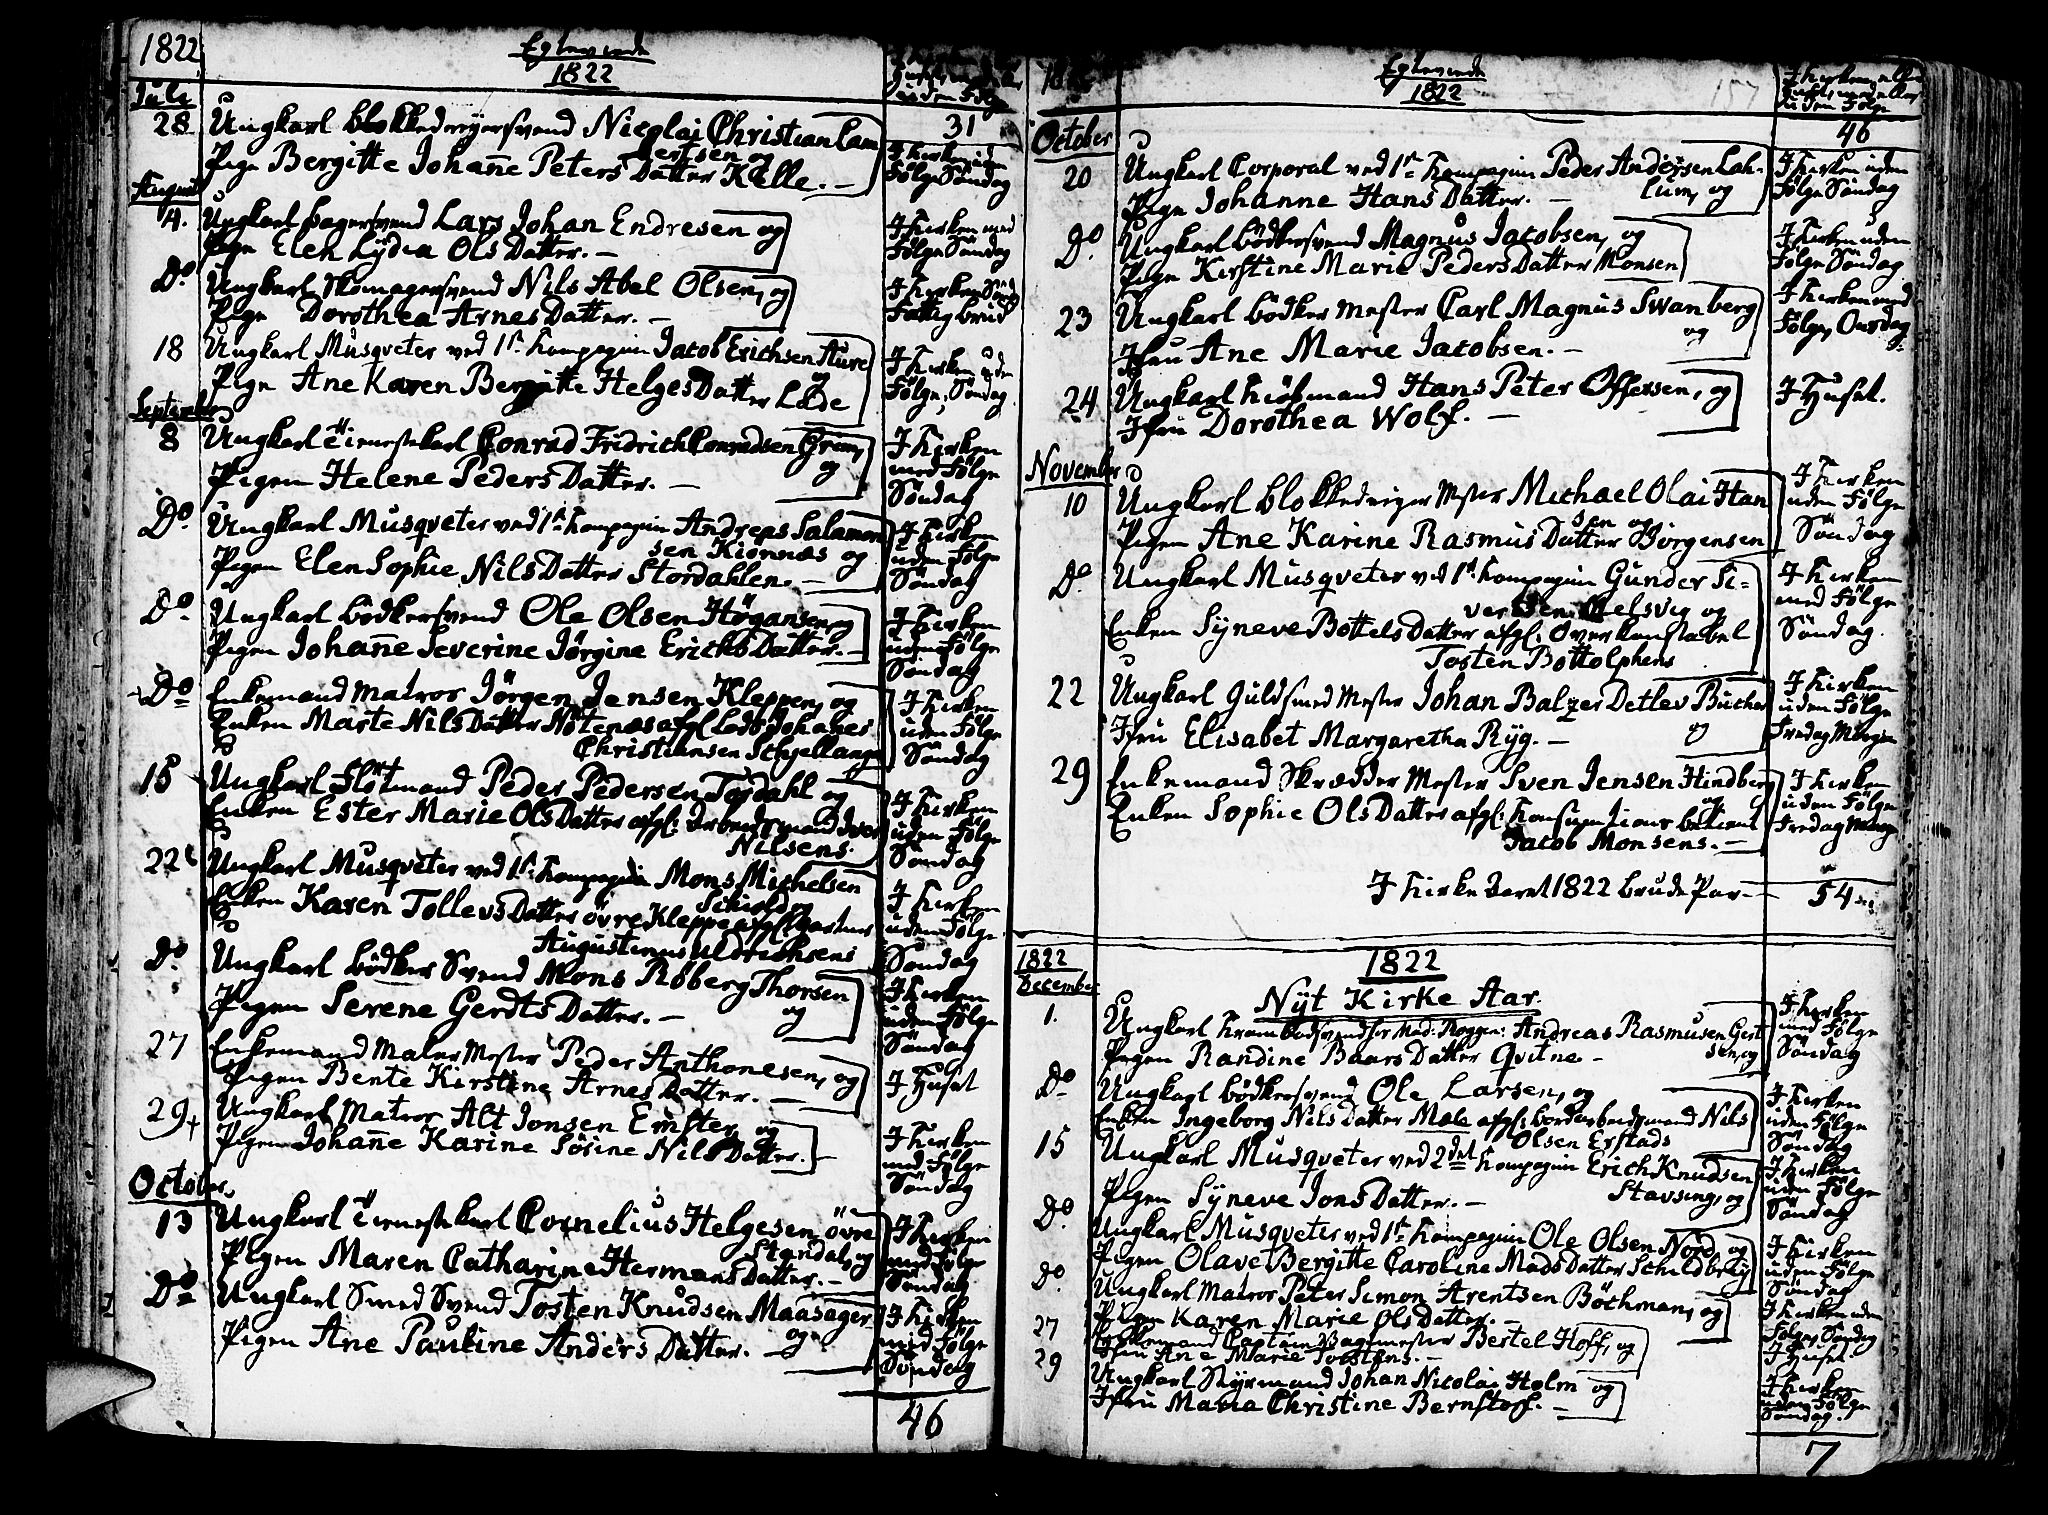 1822
Egteviede
1822
uden Følge
Julii
31
28 Ungkarl blokkedreyersvend Nicolai Christian Lam
bertsen og
Pige Bergitte Johane Peters Datter Kelle. —
I Kirken uden
Følge Søndag
August
4. Ungkarl bagersvend Lars Johan Endresen og
Pige Elen Lydia Ols Datter. —
I Kirken med
Følge Søndag
Do. Ungkarl Skomagersvend Nils Abel Olsen, og
Pige Dorothea Arnes Datter. —
I Kirken Sönd
Fattig brud
18 Ungkarl Musqveter ved 1ste Kompagnie Jacob Erichsen Aure
og
Pige Ane Karen Bergitte Helges Datter Lede
I Kirken uden
Følge, Søndag
September
8 Ungkarl Tienestekarl Conrad Fridrich Conradsen Gram,
og
Pigen Helene Peders Datter. —
I Kirken
med Følge
Søndag
Do. Ungkarl Musqveter ved 1ste Kompagnie Andreas Salamon
sen Kionnæs og
Pigen Elen Sophie Nils Datter Stordahlen. —
I Kirken
uden Følge
Søndag
Do. Ungkarl bödkersvend Ole Olsen Högansen, og
Pigen Johane Severine Jørgine Erichs Datter. —
I Kirken
uden Følge
Søndag
Do Enkemand Matros Jörgen Jensen Kleppen, og
Enken Marte Nils Datter Nötenæs afgl. Lods Johanes
Christiansen Schjellanger
I Kirken
uden Følge
Søndag
15 Ungkarl Flötmand Peder Pedersen Tordahl og
Enken Ester Marie Ols Datter afgl. Arbeidsmand Iver
Nilsens.
I Kirken
uden Følge
Søndag
22 Ungkarl Musqveter ved 1ste Kompagnie Mons Michelsen
Schiold og
Enken Karen Tollevs Datter övre Kleppe afgl.
Augustinus Uldrichsens
I Kirken
uden Følge
Søndag
Do. Ungkarl bödker Svend Mons Roberg Thorsen
og
Pigen Serene Gerdts Datter. —
I Kirken
uden Følge
Søndag
27 Enkemand Maler Mester Peder Anthonesen, og
Pigen Bente Kirstine Arnes Datter. —
I Huset
29 Ungkarl Matros Alt Jonsen Emster, og
Pigen Johane Karine Sösine Nils Datter. —
I Kirken
med Følge
Søndag
October
13 Ungkarl Tienestekarl Cornelius Helgesen övre
Standal, og
Pigen Maren Catharine Hermans Datter. —
I Kirken
med Følge
Søndag
Do Ungkarl Smed Svend Tosten Knudsen Maasager
og
Pigen Ane Pauline Anders Datter. —
I Kirken
med Følge
Søndag
46
Egteviede
1822
157
I Kirken eller
Huset, med eller
uden Følge
October
46
20 Ungkarl Corporal ved 1ste Kompagnie Peder Andersen Lah-
lum, og
Pige Johanne Hans Datter. —
I Kirken uden
Følge Søndag
Do. Ungkarl bödkersvend Magnus Jacobsen, og
Pige Kirstine Marie Peders Datter Monsen
I Kirken uden
Følge Søndag
23 Ungkarl bödker Mester Carl Magnus Swanberg
og
Jfru Ane Marie Jacobsen. —
I Kirken med
Følge, Onsdag
24 Ungkarl Kiöbmand Hans Peter Offersen, og
Jfru Dorothea Wolf. —
I Huset.
November
10 Ungkarl blokkedreyer Mester Michael Olai Han
sen og
Pigen Ane Karine Rasmus Datter Börgensen
I Kirken
uden Følge
Søndag
Do Ungkarl Musqveter ved 1ste Kompagnie Gunder Si-
versen Melsvig og
Enken Syneve Bottels Datter afgl. Overkonstabel
Tosten Bottolphens
I Kirken
med Følge
Søndag
22 Ungkarl Guldsmed Mester Johan Balzer Detlev Bucher
og
Jfru Elisabet Margaretha Ryg. —
I Kirken
uden Følge
Fredag Morgen
29 Enkemand Skrædder Mester Sven Jensen Hindberg
og
Enken Sophie Ols Datter afgl. Konsumtions betient
Jacob Monsens. —
I Kirken
uden Følge
Fredag Morgen
I Kirke Aaret 1822 brude Par — 54
1822
December
1822
Nyt Kirke Aar.
1. Ungkarl Andreas Rasmusen Gert
sen, og
Pigen Randine Baars Datter Qvitne —
I Kirken
med Følge
Søndag
Do Ungkarl bödkersvend Ole Larsen, og
Enken Ingeborg Nils Datter Mæle afgl. Nils
Olsen Erstads
I Kirken
uden Følge
Søndag
15 Ungkarl Musqveter ved 2det Kompagnie Erich Knudsen
Stavseng, og
Pigen Syneve Jons Datter. —
I Kirken
uden Følge
Søndag
Do. Ungkarl Musqveter ved 1ste Kompagnie Ole Olsen Nord og
Pigen Olave Bergitte Caroline Mads Datter Schildbreiy
I Kirken
uden Følge
Søndag
Do. Ungkarl Matros Peter Simon Arentsen Böchman, og
Pigen Karen Marie Ols Datter. —
I Kirken uden
Følge, Søndag
27 Enkemand Captain Vagtmester Bertel Hoff, og
Jfru Ane Marie Torstens. —
I Huset
29 Ungkarl Styrmand Johan Nicolai Holm og
Jfru Maria Christine Bernstoff. —
I Kirken
uden Følge
Søndag.
7